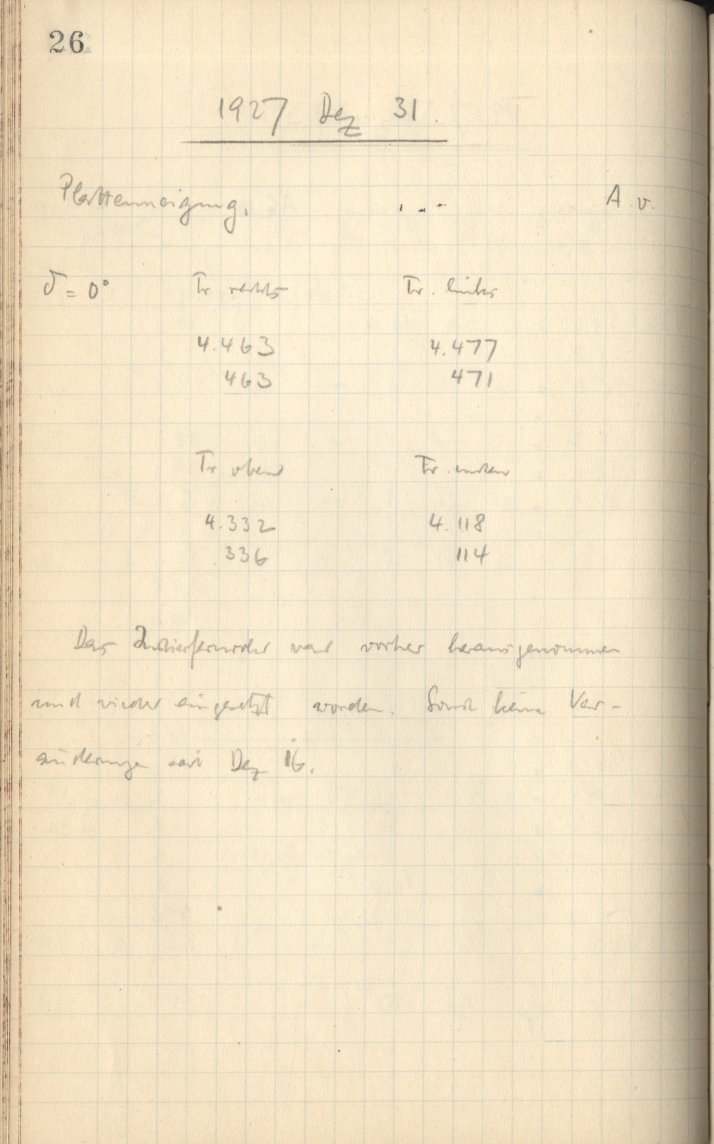 26
1927 Dez 31.
Plattenneigung. A. v.
δ = 0° Tr. rechts Tr. links
4.463 4.477
463 471
Tr. oben Tr. unten
4.332 4.118
336 114
Das war vorher herausgenommen
und wieder eingesetzt worden. Sonst keine Ver-
änderungen seit Dez 16.